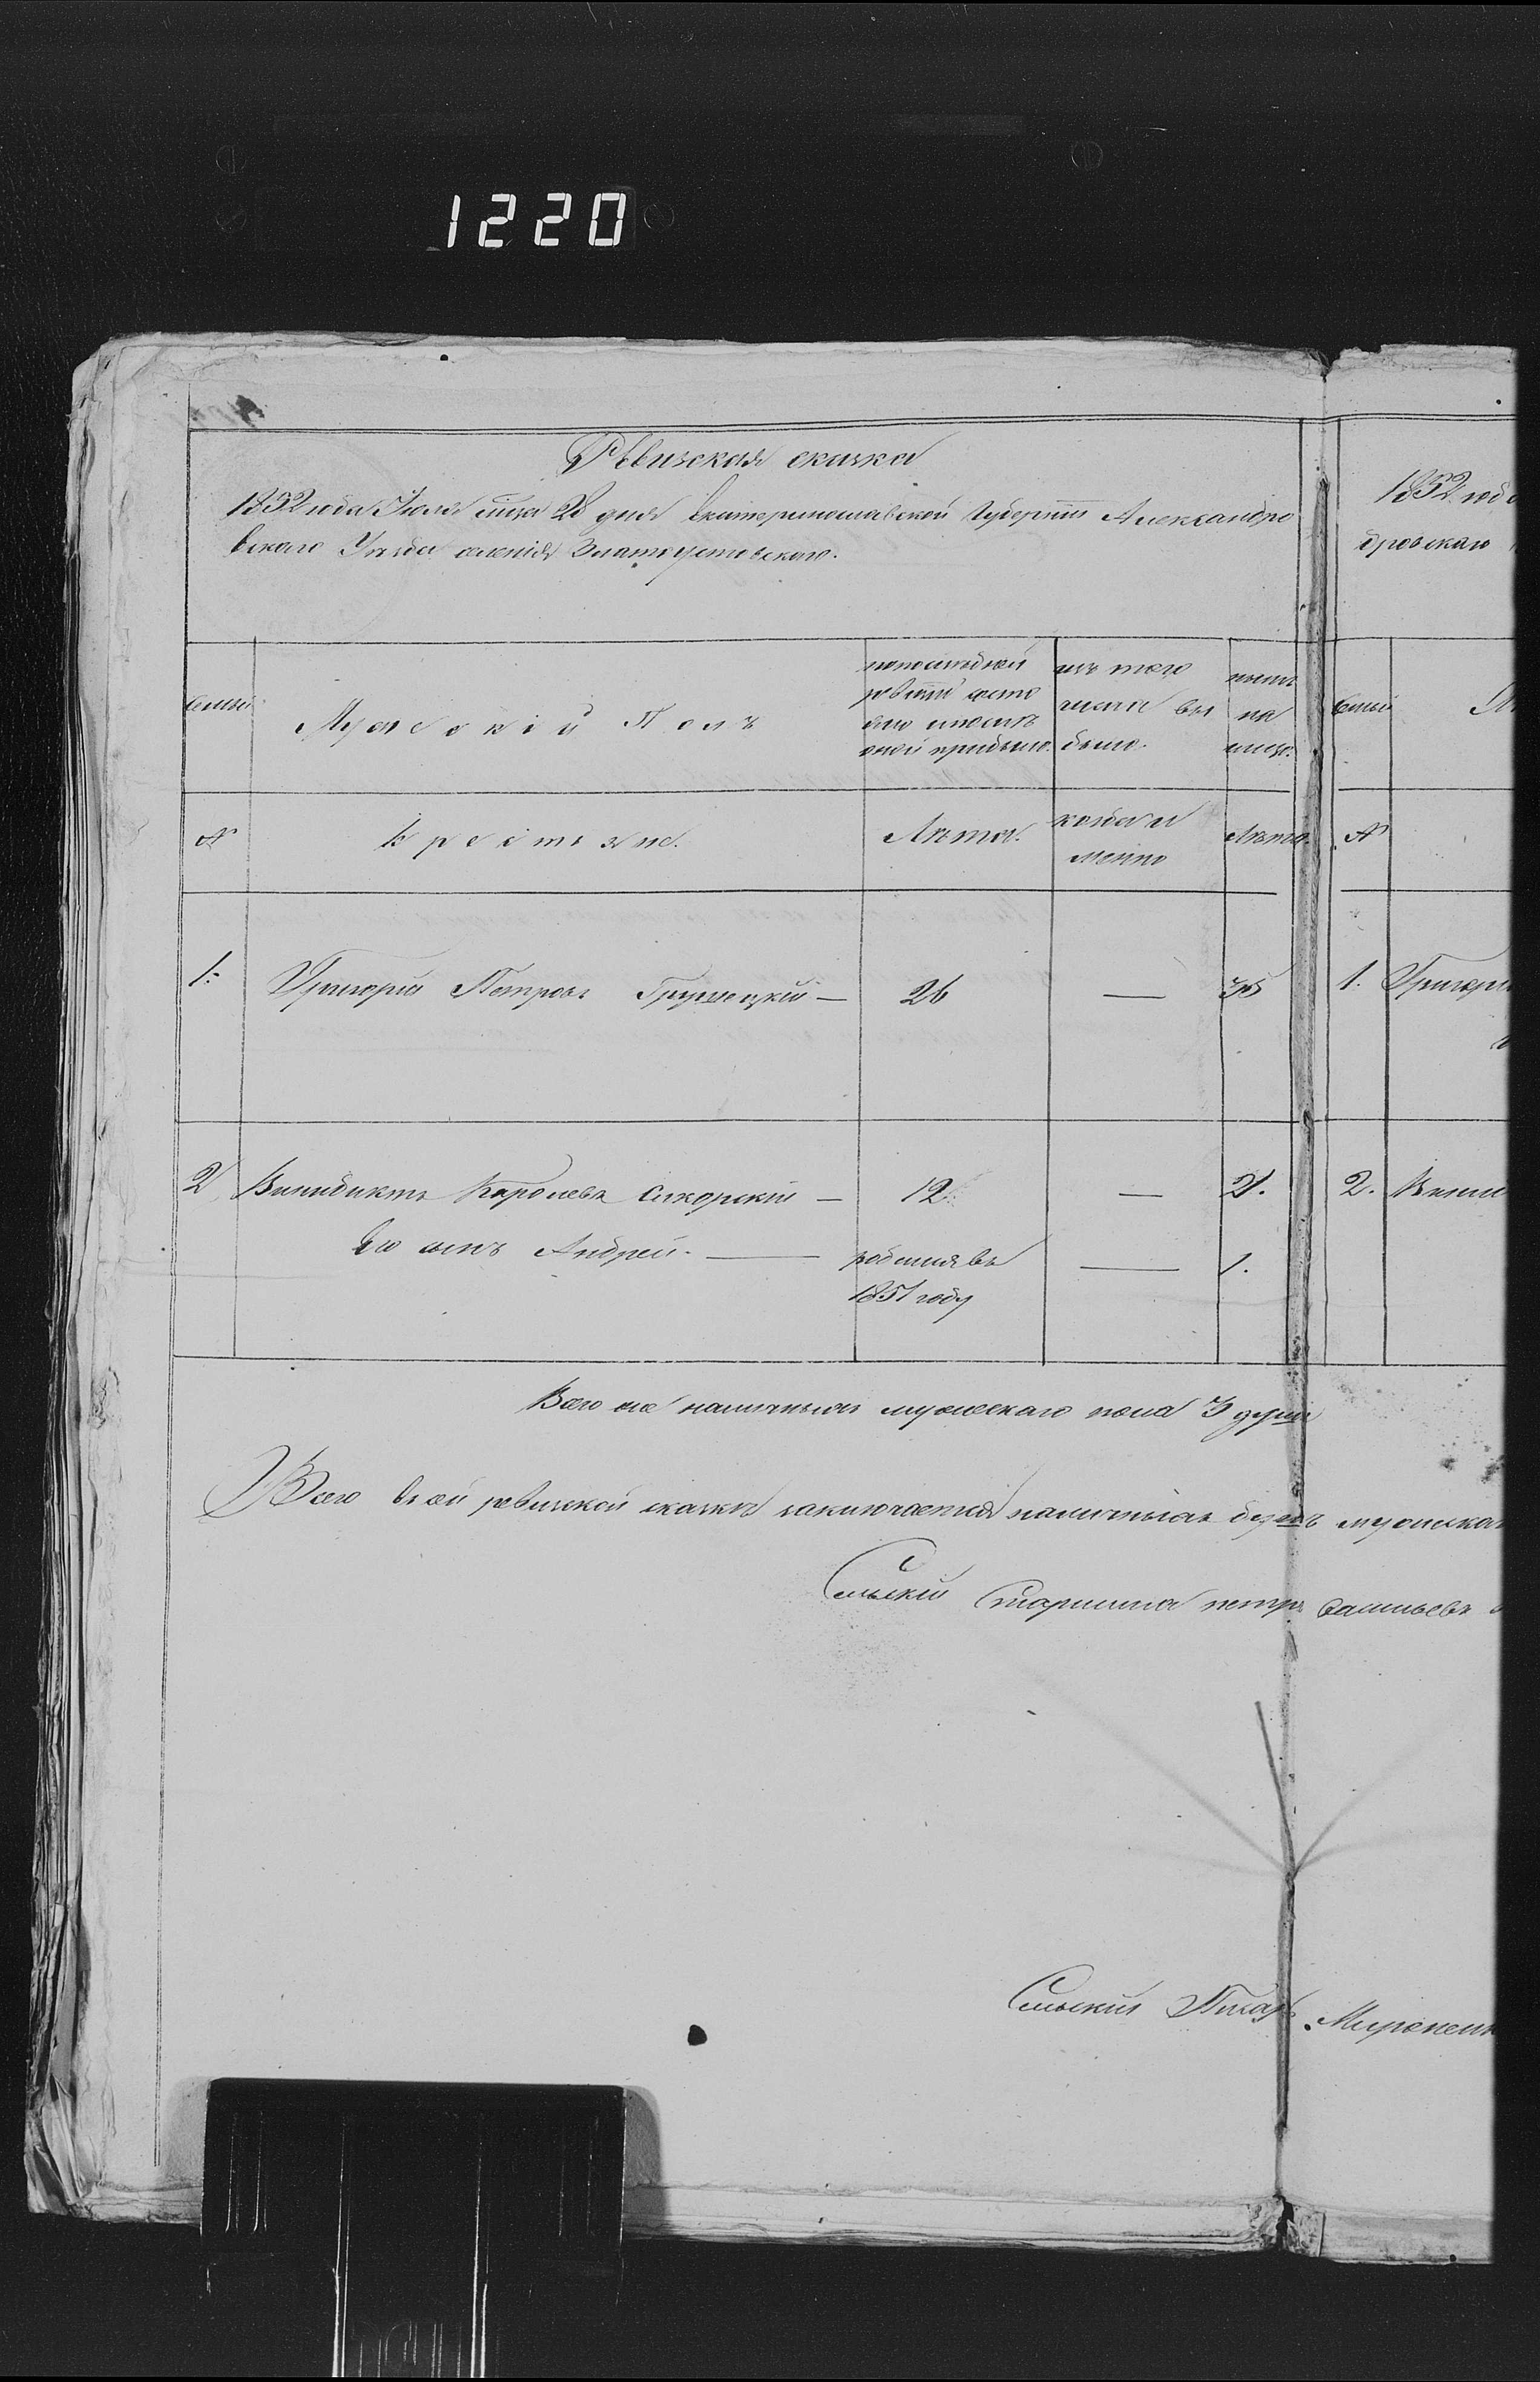 1220
Ревизская сказка
1852 года Июля м͠ца 28 дня Екатеринославской Губерніи Александро
вскаго Уезда селенія Златоустовскаго.
1852 года
дровскаго
Семьи
Мужескій Полъ
по последней
ревизіи состо
яло и после
оной прибыло.
изъ того
числа вы
было.
ныне
на
лицо.
Семьи
№
Крестьяне.
Лета.
когда и
менно
Лета.
№
1. Григорій Петровъ — 26 — 35
1. Григорій
2 Винидиктъ Каролевъ Сикорскій — 12 — 21.
2. Вини
Его сынъ Андрей. — родился въ — 1.
1851 году
Всего же наличныхъ мужескаго пола 3 души
Всего въ сей ревизской сказке заключается наличныхъ душъ мужескаго
Сельскій Старшина петръ Васильевъ
Сельскій Писарь